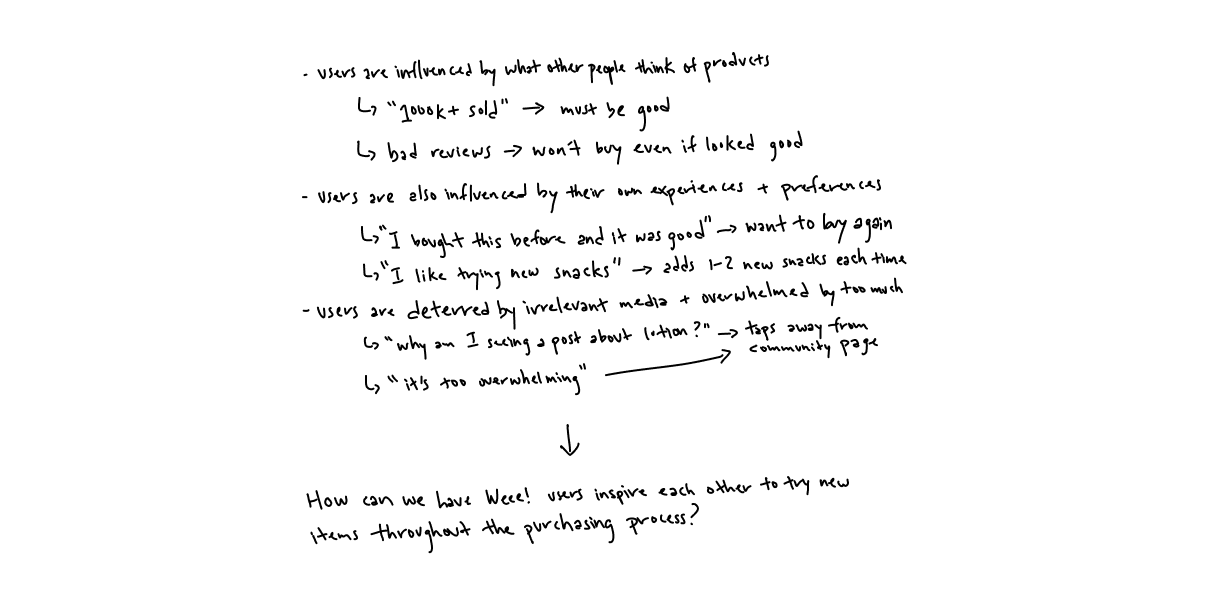 - users are influenced by what other people think of products
↳ "1000k+ sold" → must be good
↳ bad reviews → won't buy even if looked good
- users are also influenced by their own experiences + preferences
↳ "I bought this before and it was good" → want to buy again
↳ "I like trying new snacks" → adds 1-2 new snacks each time
- users are deterred by irrelevant media + overwhelmed by too much
↳ "why am I seeing a post about lotion?" → taps away from
community page
↳ "it's too overwhelming" →
↓
How can we have Weee! users inspire each other to try new
items throughout the purchasing process?